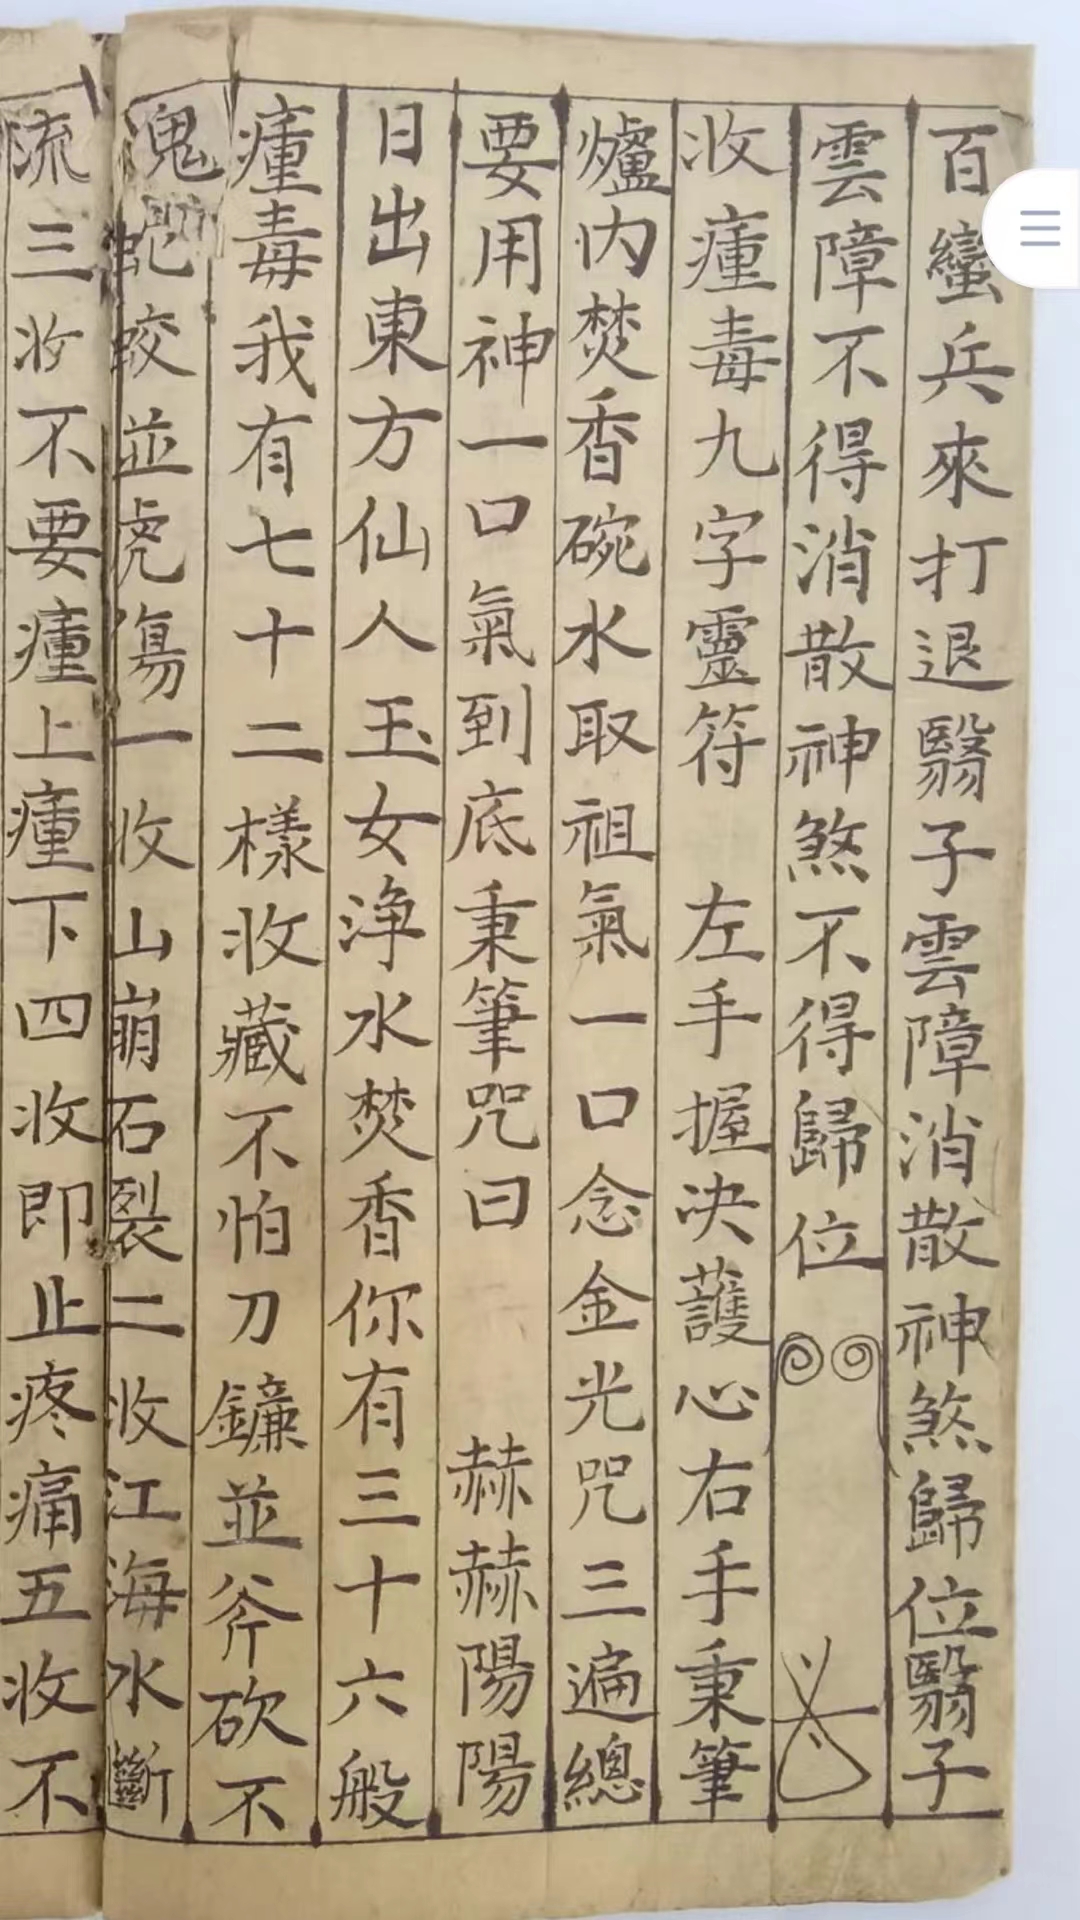 百蠻兵來打退翳子雲障消散神煞歸位翳子
雲障不得消散神煞不得歸位
收瘇毒九字靈符 左手握决護心右手秉筆
爐内焚香碗水取祖氣一口念金光咒三遍總
要用神一口氣到底秉筆咒曰 赫赫陽陽
日出東方仙人玉女净水焚香你有三十六般
瘇毒我有七十二樣收藏不怕刀鐮並斧砍不
蛇蛟並虎傷一收山崩石裂二收江海水斷
流三收不要瘇上瘇下四收即止疼痛五收不